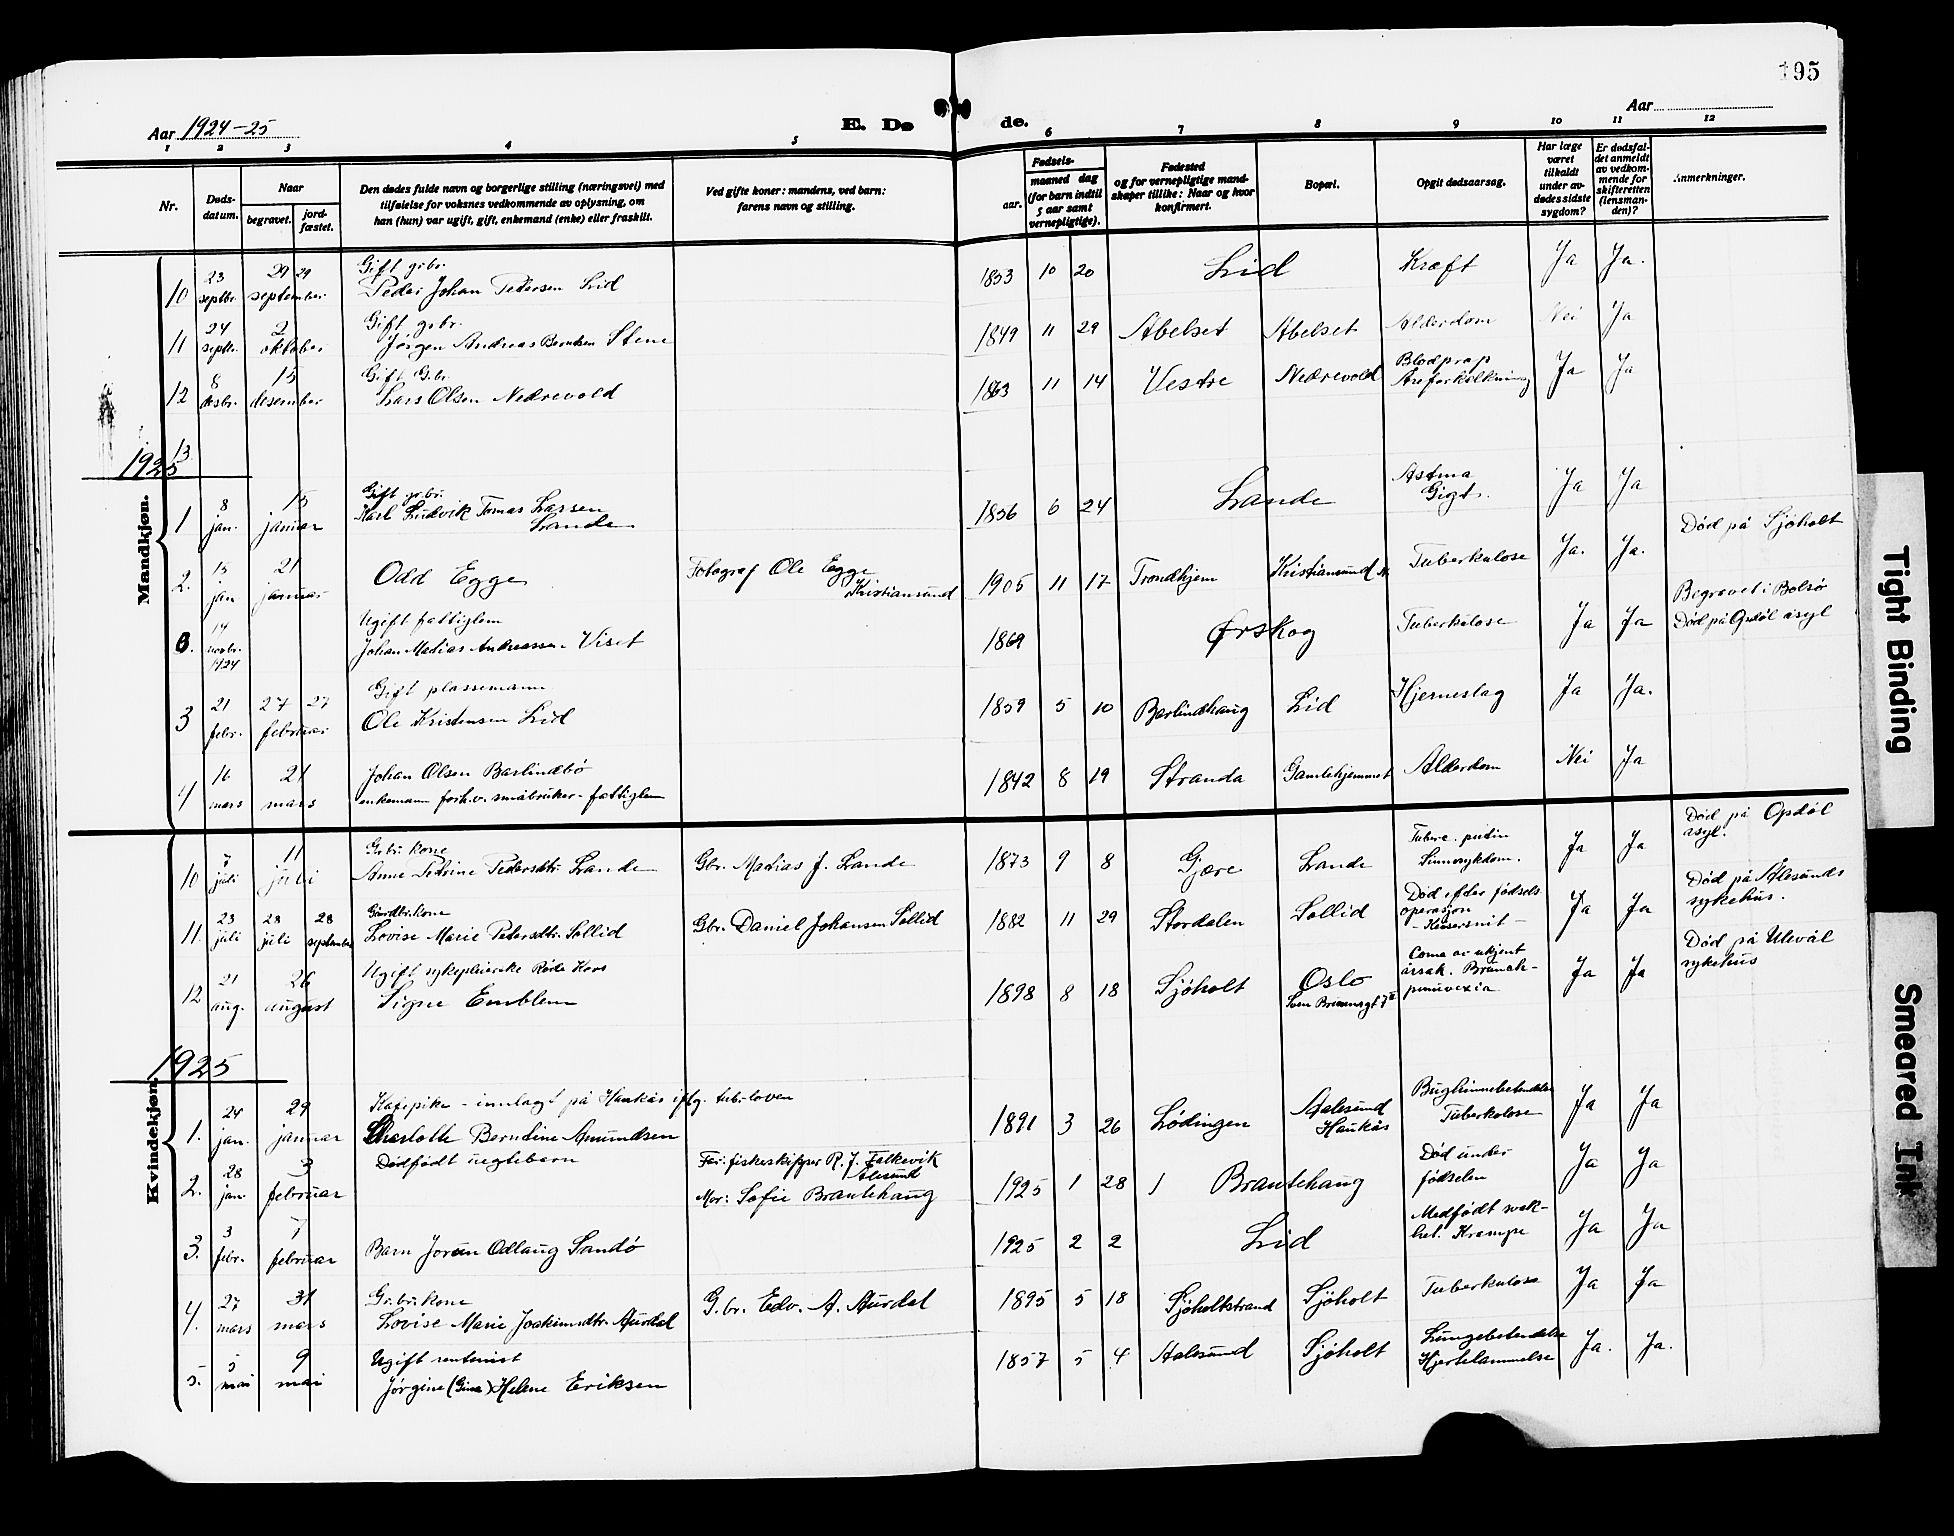 195
Aar 1924-25
E. Dø
de.
Aar
1 2 3 4 5 6 7 8 9 10 11 12
Nr.
Døds-
datum.
Naar
begravet.
jord-
fæstet.
Den dødes fulde navn og borgerlige stilling (næringsvei) med
tilføielse for voksnes vedkommende av oplysning, om
han (hun) var ugift, gift, enkemand (enke) eller fraskilt.
Ved gifte koner: mandens, ved barn:
farens navn og stilling.
Fødsels-
aar.
maaned dag
(for barn indtil
5 aar samt
vernepligtige).
Fødested
og for vernepligtige mand-
skaper tillike: Naar og hvor
konfirmert.
Bopæl.
Opgit dødsaarsag.
Har læge
været
tilkaldt
under av-
dødes sidste
sygdom?
Er dødsfal-
det anmeldt
av vedkom-
mende for
skifteretten
(lensman-
den)?
Anmerkninger.
Mandkjøn.
10 23 septbr. 29 september 29 Gift grbr.
Peder Johan Petersen Lid 1853 10 20 Lid Kræft Ja Ja.
11 24 septbr. 2 oktober Gift grbr.
Jørgen Andreas Berntsen Stene 1849 11 29 Abelset Abelset Alderdom Nei Ja
12 8 desbr. 15 desember Gift G.br.
Lars Olsen Nedrevold 1863 11 14 Vestre Nedrevold Blodprop
Areforkalkning Ja Ja
13
1925
1 8 jan. 15 januar Gift grbr.
Karl Ludvik Tomas Larsen
Lande 1856 6 24 Lande Astma
Gigt. Ja Ja
2. 15 jan 21 januar Odd Egge Fotograf Ole Egge
Kristiansund 1905 11 17 Trondhjem Kristiansund N. Tuberkulose Ja. Ja. Død på Sjøholt
0. 14 novbr. 1924 Ugift fattiglem
Johan Matias Andreassen Viset 1869 Ørskog Tuberkulose Ja Ja Begravet i Bolsø
Død på Opdøl asyl
3 21 febr. 27 februar 27 Gift plassemann
Ole Kristensen Lid 1859 5 10 Barlindhaug Lid Hjerneslag Ja Ja.
4 16 mars 21 mars Johan Olsen Barlindbø
enkemann forhv. småbruker - fattiglem 1842 8 19 Stranda Gamlehjemmet Alderdom Nei Ja
Kvindekjøn.
10 7 juli 11 juli Grbr. kone
Anne Petrine Pedersdtr. Lande Gbr. Matias J. Lande 1873 9 8 Gjære Lande
Sinnssykdom. Ja Ja Død på Opdøl
asyl.
11. 23 juli 28 juli 28 september Gårdbr. kone
Lovise Marie Petersdtr. Sollid Gbr. Daniel Johansen Sollid 1882 11 29 Stordalen Sollid Død efter fødsels
operasjon
- Keisersnit - Ja Ja Død på Ålesunds
sykehus.
12 21 aug. 26 august Ugift sykepleierske Røde Kors
Signe Emblem 1898 8 18 Sjøholt Oslo Coma av ukjent
årsak. Ja Ja Død på Ulevål
sykehus
1925
1. 24 jan. 29 januar Kafepike - innlagt på Haukås iflg. tub.loven
Charlotte Berndine Amundsen 1891 3 26 Lødingen Aalesund
Haukås Bughinnebetendelse
Tuberkulose Ja Ja
2. 28 jan. 3 februar Dødfødt uegtebarn Far: fiskeskipper R. J. Falkevik
Ålesund
Mor: Sofie Brautehaug 1925 1 28 Brautehaug Død under
fødselen Ja Ja
3. 3 febr. 7 februar Barn Jorun Odlaug Sandø 1925 2 2 Lid Medfødt svak-
het. Krampe Ja Ja
4. 27 mars 31 mars Gr.br.kone
Lovise Marie Joakimsdtr. Aurdal G.br. Edv. A. Aurdal 1895 5 18 Sjøholtstrand Sjøholt Tuberkulose Ja Ja
5. 5 mai 9 mai Ugift rentenist
Jørgine (Gina) Helene Eriksen 1857 5 4 Aalesund Sjøholt Lungebetendelse
Hjertelammelse Ja. Ja.
Tight Binding
Smeared Ink